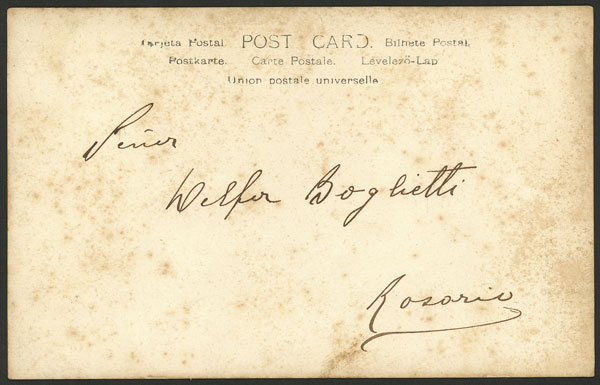 Tarjeta Postal. POST CARD. Bilhete Postal.
Postkarte. Carte Postale. Levelező-Lap
Union postale universelle
Señor
Delfor Boglietti
Rosario